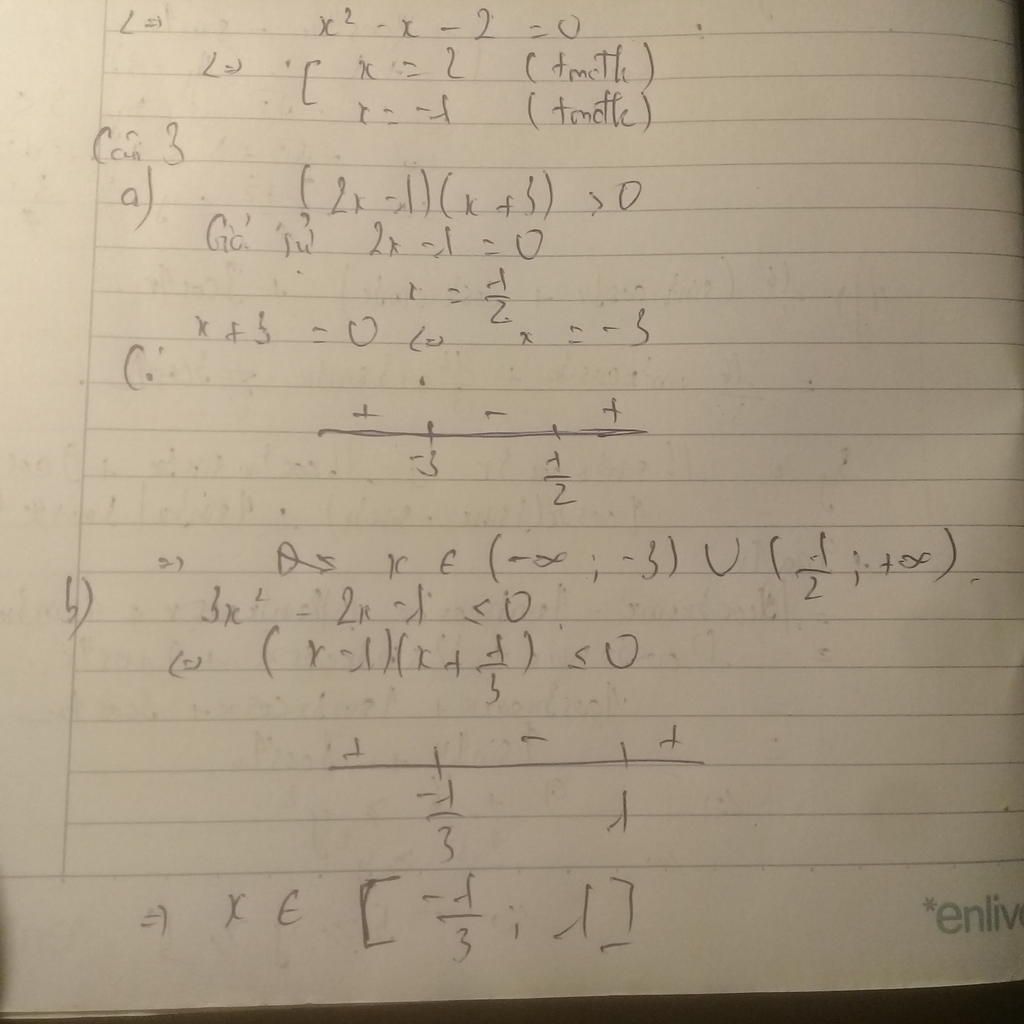 <=> x² - x - 2 = 0
<=> [ x = 2 (tmđk)
x = -1 (tmđk)
Câu 3
a) (2x - 1)(x + 3) > 0
Giả sử 2x - 1 = 0
x = 1/2
x + 3 = 0 <=> x = -3
+ - +
-3 1/2
=> x ∈ (-∞ ; -3) ∪ (1/2 ; +∞)
b) 3x² - 2x - 1 ≤ 0
<=> (x - 1)(x + 1/3) ≤ 0
+ - +
-1/3 1
=> x ∈ [-1/3 ; 1]
*enlive